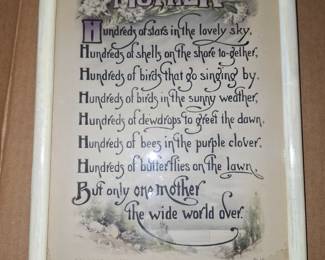 MOTHER
Hundreds of stars in the lovely sky,
Hundreds of shells on the shore to-gether,
Hundreds of birds that go singing by.
Hundreds of birds in the sunny weather,
Hundreds of dewdrops to greet the dawn,
Hundreds of bees in the purple clover.
Hundreds of butterflies on the lawn,
But only one mother
the wide world over.